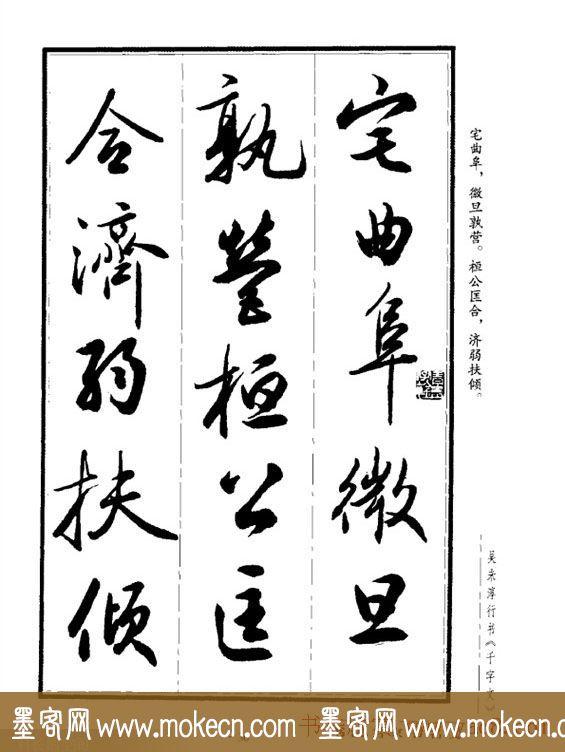 宅曲阜微旦
孰營桓公匡
合濟弱扶傾
宅曲阜，微旦孰营。桓公匡合，济弱扶倾。
吴来淳行书《千字文》
墨客网 www.mokecn.com 墨客网 www.mokecn.com